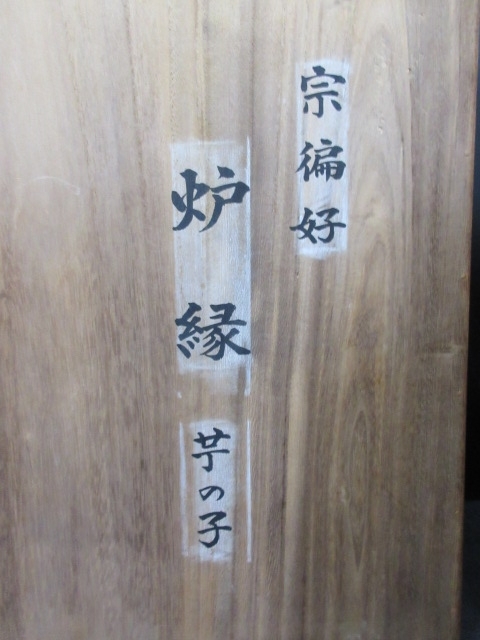 宗徧好
炉縁
芋の子